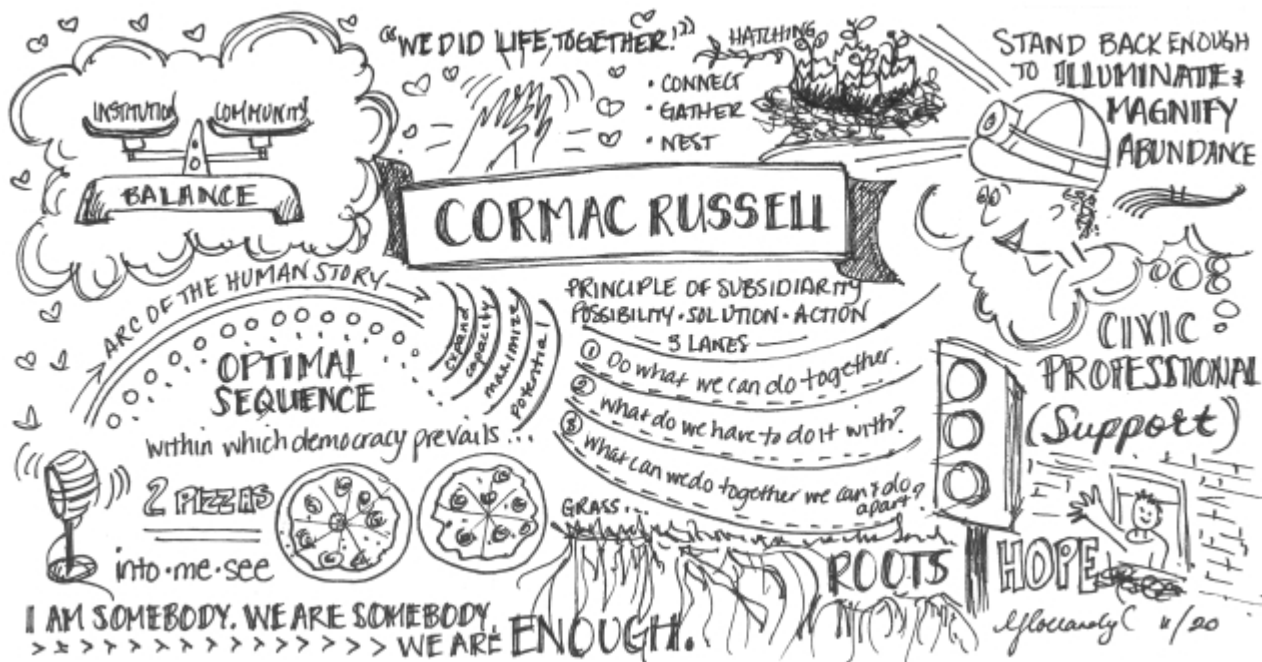 INSTITUTION COMMUNITY
BALANCE
"WE DID LIFE TOGETHER!"
HATCHING
• CONNECT
• GATHER
• NEST
STAND BACK ENOUGH
TO ILLUMINATE &
MAGNIFY
ABUNDANCE
CORMAC RUSSELL
ARC OF THE HUMAN STORY
OPTIMAL
SEQUENCE
within which democracy prevails...
expand
capacity
maximize
potential
PRINCIPLE OF SUBSIDIARITY
POSSIBILITY • SOLUTION • ACTION
3 LANES
1 Do what we can do together.
2 What do we have to do it with?
3 What can we do together we can't do
apart?
CIVIC
PROFESSIONAL
(Support)
2 PIZZAS
into•me•see
GRASS...
ROOTS
HOPE
I AM SOMEBODY. WE ARE SOMEBODY.
WE ARE ENOUGH.
11/20